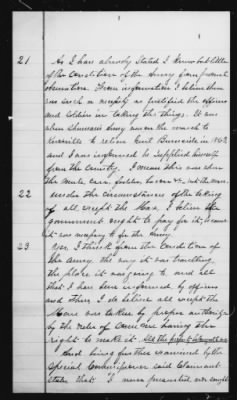 21 As I have already stated I know but little
of the condition of the Army from personal
observation. From information I believe there
was such a necessity as justified the officers
and soldiers in taking the things. It was
when Shermans Army was on the march to
Knoxville to relieve Genl Burnside in 1863
and I was informed he supplied himself
from the country. I mean this was when
the mules corn, fodder, bacon &c, not the mare
22 under the circumstances of the taking
of all except the Mare I believe the
government ought to pay for it, because
it was necessary for the army.
23 Yes. I think from the condition of
the army, the way it was traveling,
the place it was going to and all
that I have been informed by officers
and others, I do believe all except the
Mare was taken by proper authority
by the order of some one having the
right to make it.
And being further examined by the
Special Commissioner said Claimant
states that "I never presented or